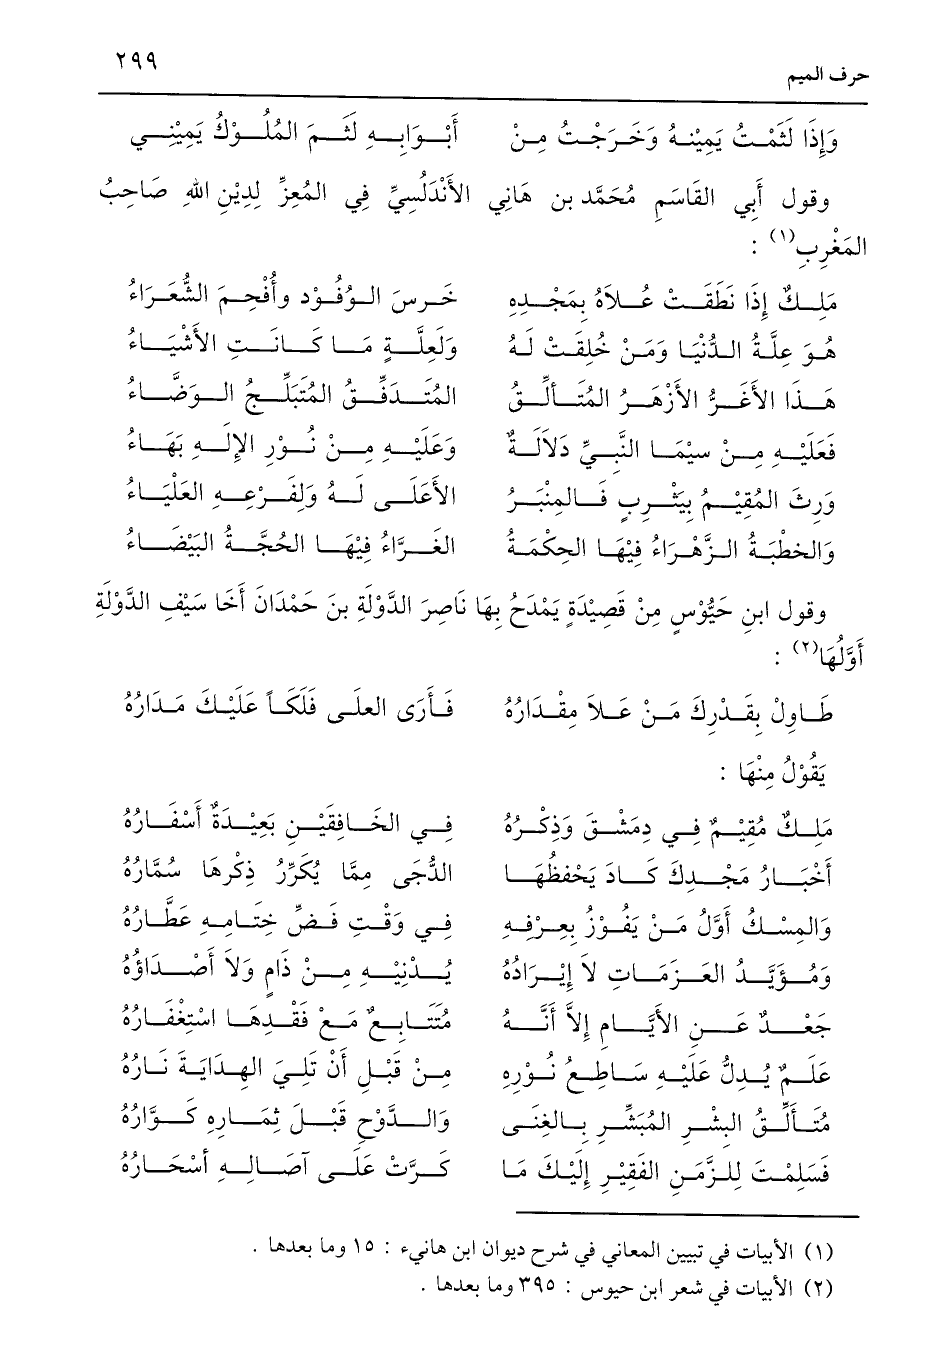 حرف الميم ٢٩٩
وَإِذَا لَثَمْتُ يَمِيْنَهُ وَخَرَجْتُ مِنْ أَبْوَابِهِ لَثَمَ المُلُوْكُ يَمِيْنِي
وقول أَبِي القَاسَمِ مُحَمَّد بن هَانِي الأَنْدَلُسِيِّ فِي المُعِزِّ لِدِيْنِ اللهِ صَاحِبُ
المَغْرِبِ(١) :
مَلِكٌ إِذَا نَطَقَتْ عُلاَهُ بِمَجْدِهِ خَرسَ الوُفُوْد وأُفْحِمَ الشُّعَرَاءُ
هُوَ عِلَّةُ الدُّنْيَا وَمَنْ خُلِقَتْ لَهُ وَلَعِلَّةٍ مَا كَانَتِ الأَشْيَاءُ
هَذَا الأَغَرُّ الأَزْهَرُ المُتَأَلِّقُ المُتَدَفِّقُ المُتَبَلِّجُ الوَضَّاءُ
فَعَلَيْهِ مِنْ سِيْمَا النَّبِيِّ دَلاَلَةٌ وَعَلَيْهِ مِنْ نُوْرِ الإِلَهِ بَهَاءُ
وَرِثَ المُقِيْمُ بِيَثْرِبٍ فَالمِنْبَرُ الأَعْلَى لَهُ وَلِفَرْعِهِ العَلْيَاءُ
وَالخطْبَةُ الزَّهْرَاءُ فِيْهَا الحِكْمَةُ الغَرَّاءُ فِيْهَا الحُجَّةُ البَيْضَاءُ
وقول ابن حَيُّوْسٍ مِنْ قَصِيْدَةٍ يَمْدَحُ بِهَا نَاصِرَ الدَّوْلَةِ بنَ حَمْدَانَ أَخَا سَيْفِ الدَّوْلَةِ
أَوَّلُهَا(٢) :
طَاوِلْ بِقَدْرِكَ مَنْ عَلاَ مِقْدَارُهُ فَأَرَى العلَى فَلَكَاً عَلَيْكَ مَدَارُهُ
يَقُوْلُ مِنْهَا :
مَلِكٌ مُقِيْمٌ فِي دِمَشْقَ وَذِكْرُهُ فِي الخَافِقَيْنِ بَعِيْدَةٌ أَسْفَارُهُ
أَخْبَارُ مَجْدِكَ كَادَ يَحْفَظُهَا الدُّجَى مِمَّا يُكَرِّرُ ذِكْرهَا سُمَّارُهُ
وَالمِسْكُ أَوَّلُ مَنْ يَفُوْزُ بِعِرْفِهِ فِي وَقْتِ فَضِّ خِتَامِهِ عَطَّارُهُ
وَمُؤَيَّدُ العَزَمَاتِ لاَ إِيْرَادُهُ يُدْنِيْهِ مِنْ ذَامٍ وَلاَ أَصْدَاؤُهُ
جَعْدٌ عَنِ الأَيَّامِ إِلاَّ أَنَّهُ مُتَتَابِعٌ مَعَ فَقْدِهَا اسْتِغْفَارُهُ
عَلَمٌ يُدِلُّ عَلَيْهِ سَاطِعُ نُوْرِهِ مِنْ قَبْلِ أَنْ تَلِيَ الهِدَايَةَ نَارُهُ
مُتَأَلِّقُ البِشْرِ المُبَشِّرِ بِالغِنَى وَالدَّوْحِ قَبْلَ ثِمَارِهِ كَوَّارُهُ
فَسَلِمْتَ لِلزَّمَنِ الفَقِيْرِ إِلَيْكَ مَا كَرَّتْ عَلَى آصَالِهِ أَسْحَارُهُ
(١) الأبيات في تبيين المعاني في شرح ديوان ابن هانيء : ١٥ وما بعدها .
(٢) الأبيات في شعر ابن حيوس : ٣٩٥ وما بعدها .